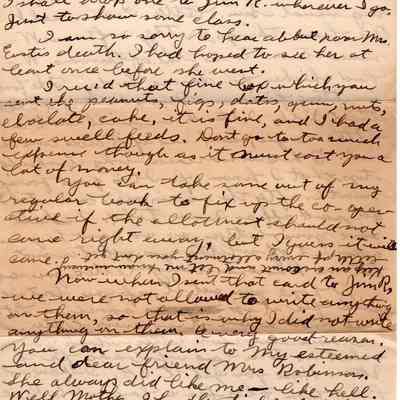 I shall drop one to Jim R. wherever I go.
Just to show some class.
I am so sorry to hear about poor Mrs.
Eustis death. I had hoped to see her at
least once before she went.
I rec'd that fine box which you
sent the peanuts, figs, dates, gum, nuts,
choclate, cake, it is fine, and I had a
few swell feeds. Dont go to too much
expense though as it must cost you a
lot of money.
You can take some out of my
regular book to fix up the co-oper
ative if the allotment should not
come right away, but I guess it will
come.
Now when I sent that card to Jim R,
we were not allowed to write anything
on them, so that is why I did not write
anything on them, a very good reason.
You can explain to my esteemed
and dear friend Mrs Robinson.
She always did like me — like hell.
Well Mother I